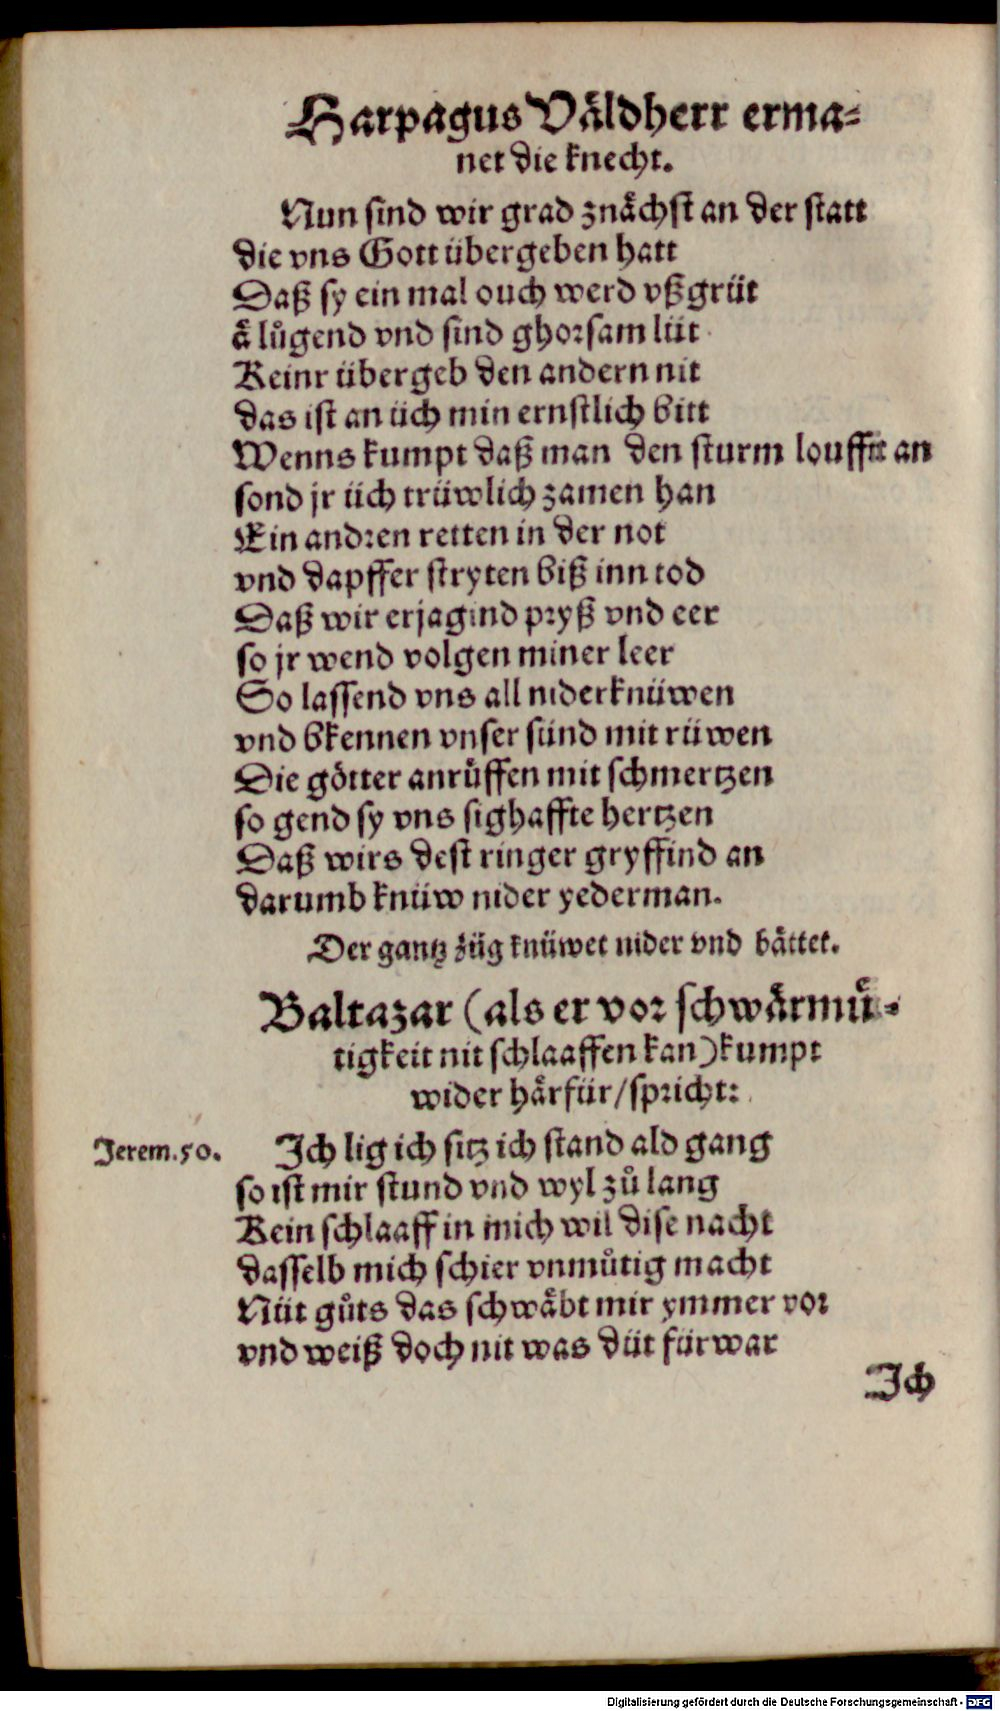 Harpagus Vaͤldherr erma⸗
net die knecht.
Nun sind wir grad znaͤchst an der statt
die vns Gott übergeben hatt
Daß sy ein mal ouch werd vßgrüt
aͤ luͦgend vnd sind ghorsam lüt
Keinr übergeb den andern nit
das ist an üch min ernstlich bitt
Wenns kumpt daß man den sturm louffīt an
sond jr üch trüwlich zamen han
Ein andren retten in der not
vnd dapffer stryten biß inn tod
Daß wir erjagind pryß vnd eer
so jr wend volgen miner leer
So lassend vns all niderknüwen
vnd bkennen vnser sünd mit rüwen
Die goͤtter anruͤffen mit schmertzen
so gend sy vns sighaffte hertzen
Daß wirs dest ringer gryffind an
darumb knüw nider yederman.
Der gantz züg knüwet nider vnd baͤttet.
Baltazar (als er vor schwaͤrmuͤ⸗
tigkeit nit schlaaffen kan) kumpt
wider haͤrfür/spricht:
Jerem.50.
Jch lig ich sitz ich stand ald gang
so ist mir stund vnd wyl zuͦ lang
Kein schlaaff in mich wil dise nacht
dasselb mich schier vnmuͤtig macht
Nüt guͦts das schwaͤbt mir ymmer vor
vnd weiß doch nit was düt fürwar
Jch
Digitalisierung gefördert durch die Deutsche Forschungsgemeinschaft - DFG